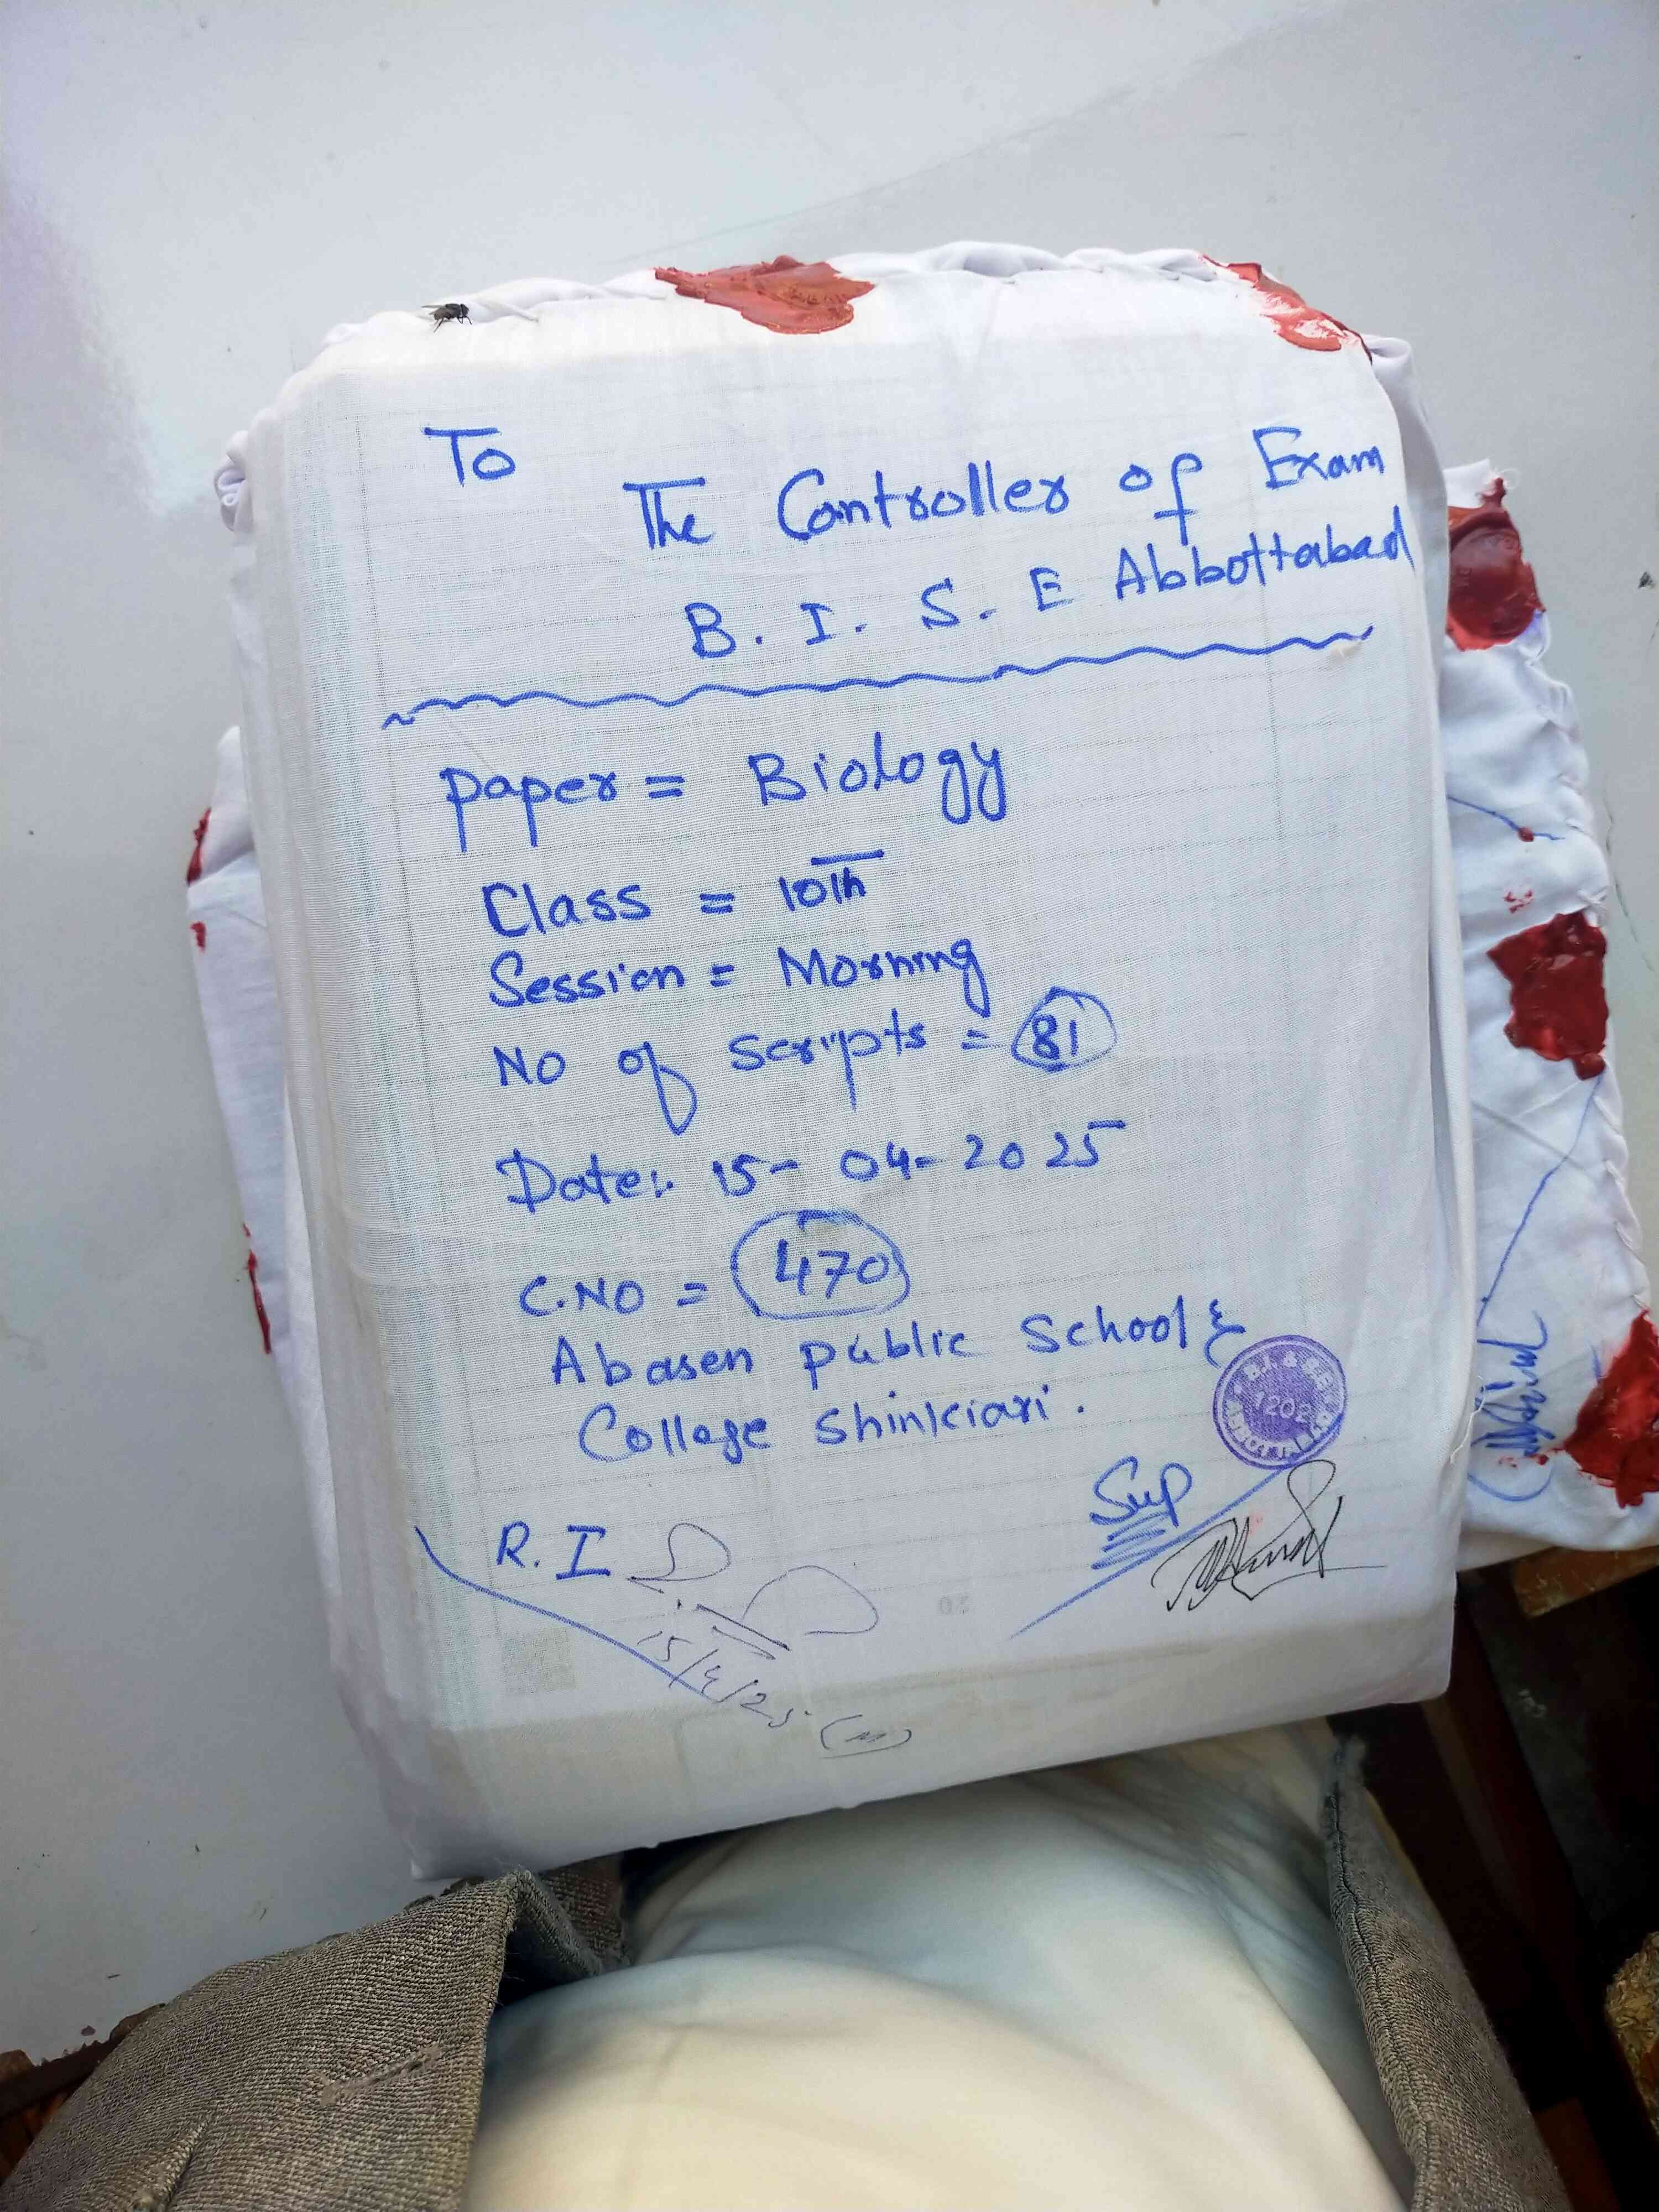 To
The Controller of Exam
B. I. S. E Abbottabad
Paper = Biology
Class = 10th
Session = Morning
No of scripts = 81
Date:. 15- 04-2025
C.NO = 470
Abasen public School &
College Shinkiari.
1202
R. I
Sup
15/4/25 (M)